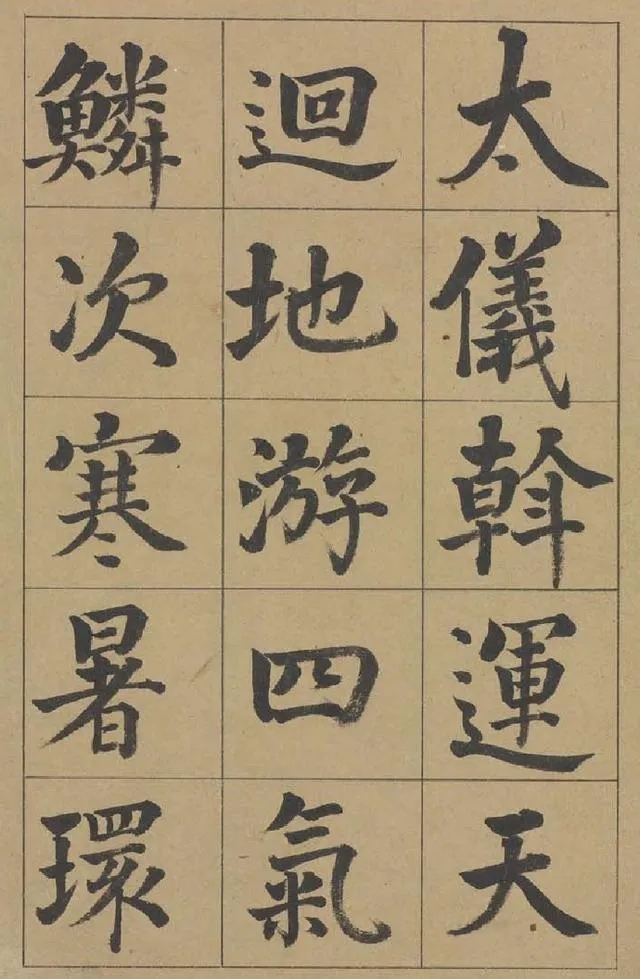 太儀斡運天
迴地游四氣
鱗次寒暑環